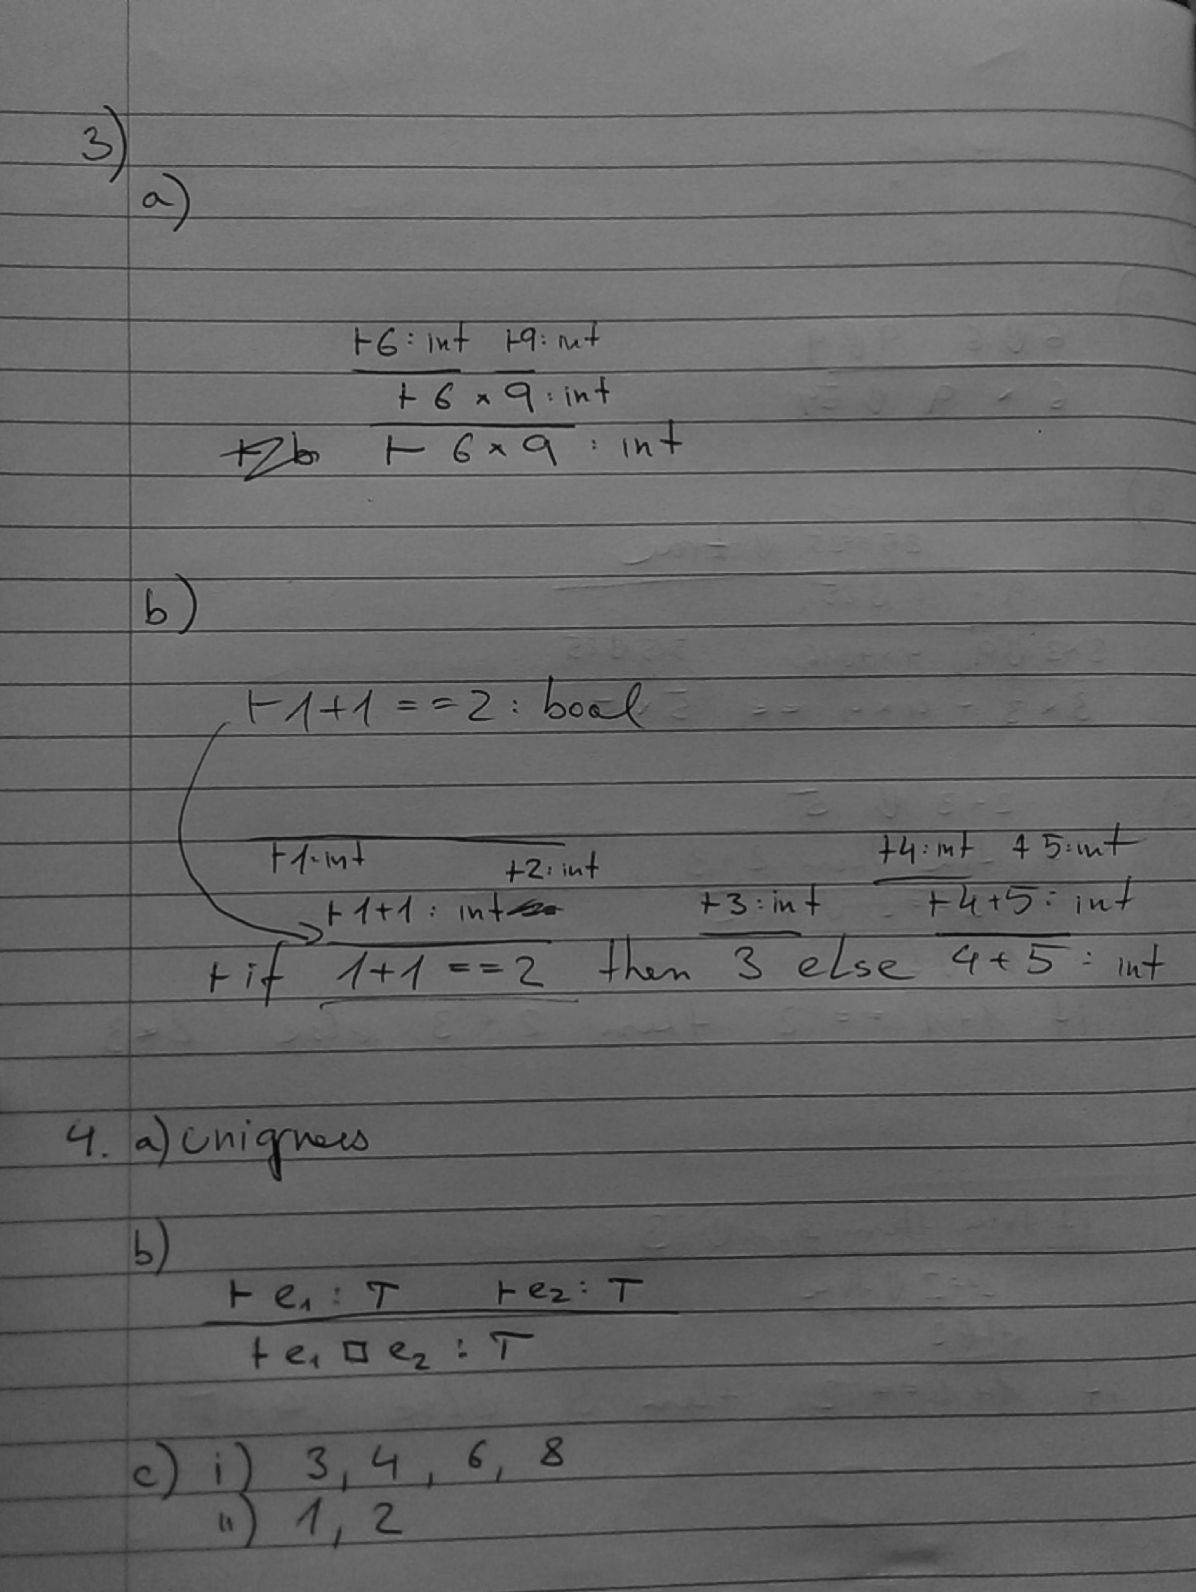 3)
a)
⊢6: int ⊢9: int
⊢ 6 × 9 : int
⊢ 6 × 9 : int
b)
⊢1+1 == 2 : bool
⊢1: int ⊢2: int
⊢1+1 : int ⊢3: int ⊢4: int ⊢5: int
⊢4+5 : int
⊢ if 1+1 == 2 then 3 else 4+5 : int
4. a) uniqness
b)
⊢ e₁ : T ⊢ e₂ : T
⊢ e₁ □ e₂ : T
c) i) 3, 4, 6, 8
ii) 1, 2